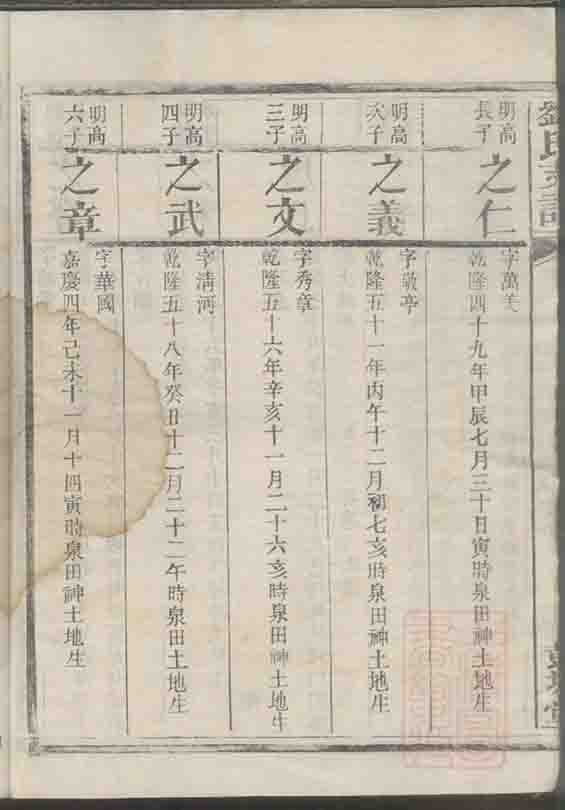 劉氏支譜
明高
長子
之仁
字萬美
乾隆四十九年甲辰七月三十日寅時泉田神土地生
明高
次子
之義
字敬亭
乾隆五十一年丙午十二月初七亥時泉田神土地生
明高
三子
之文
字秀章
乾隆五十六年辛亥十一月二十六亥時泉田神土地生
明高
四子
之武
字清河
乾隆五十八年癸丑十二月二十二午時泉田土地生
明高
六子
之章
字華國
嘉慶四年己未十一月十四寅時泉田神土地生